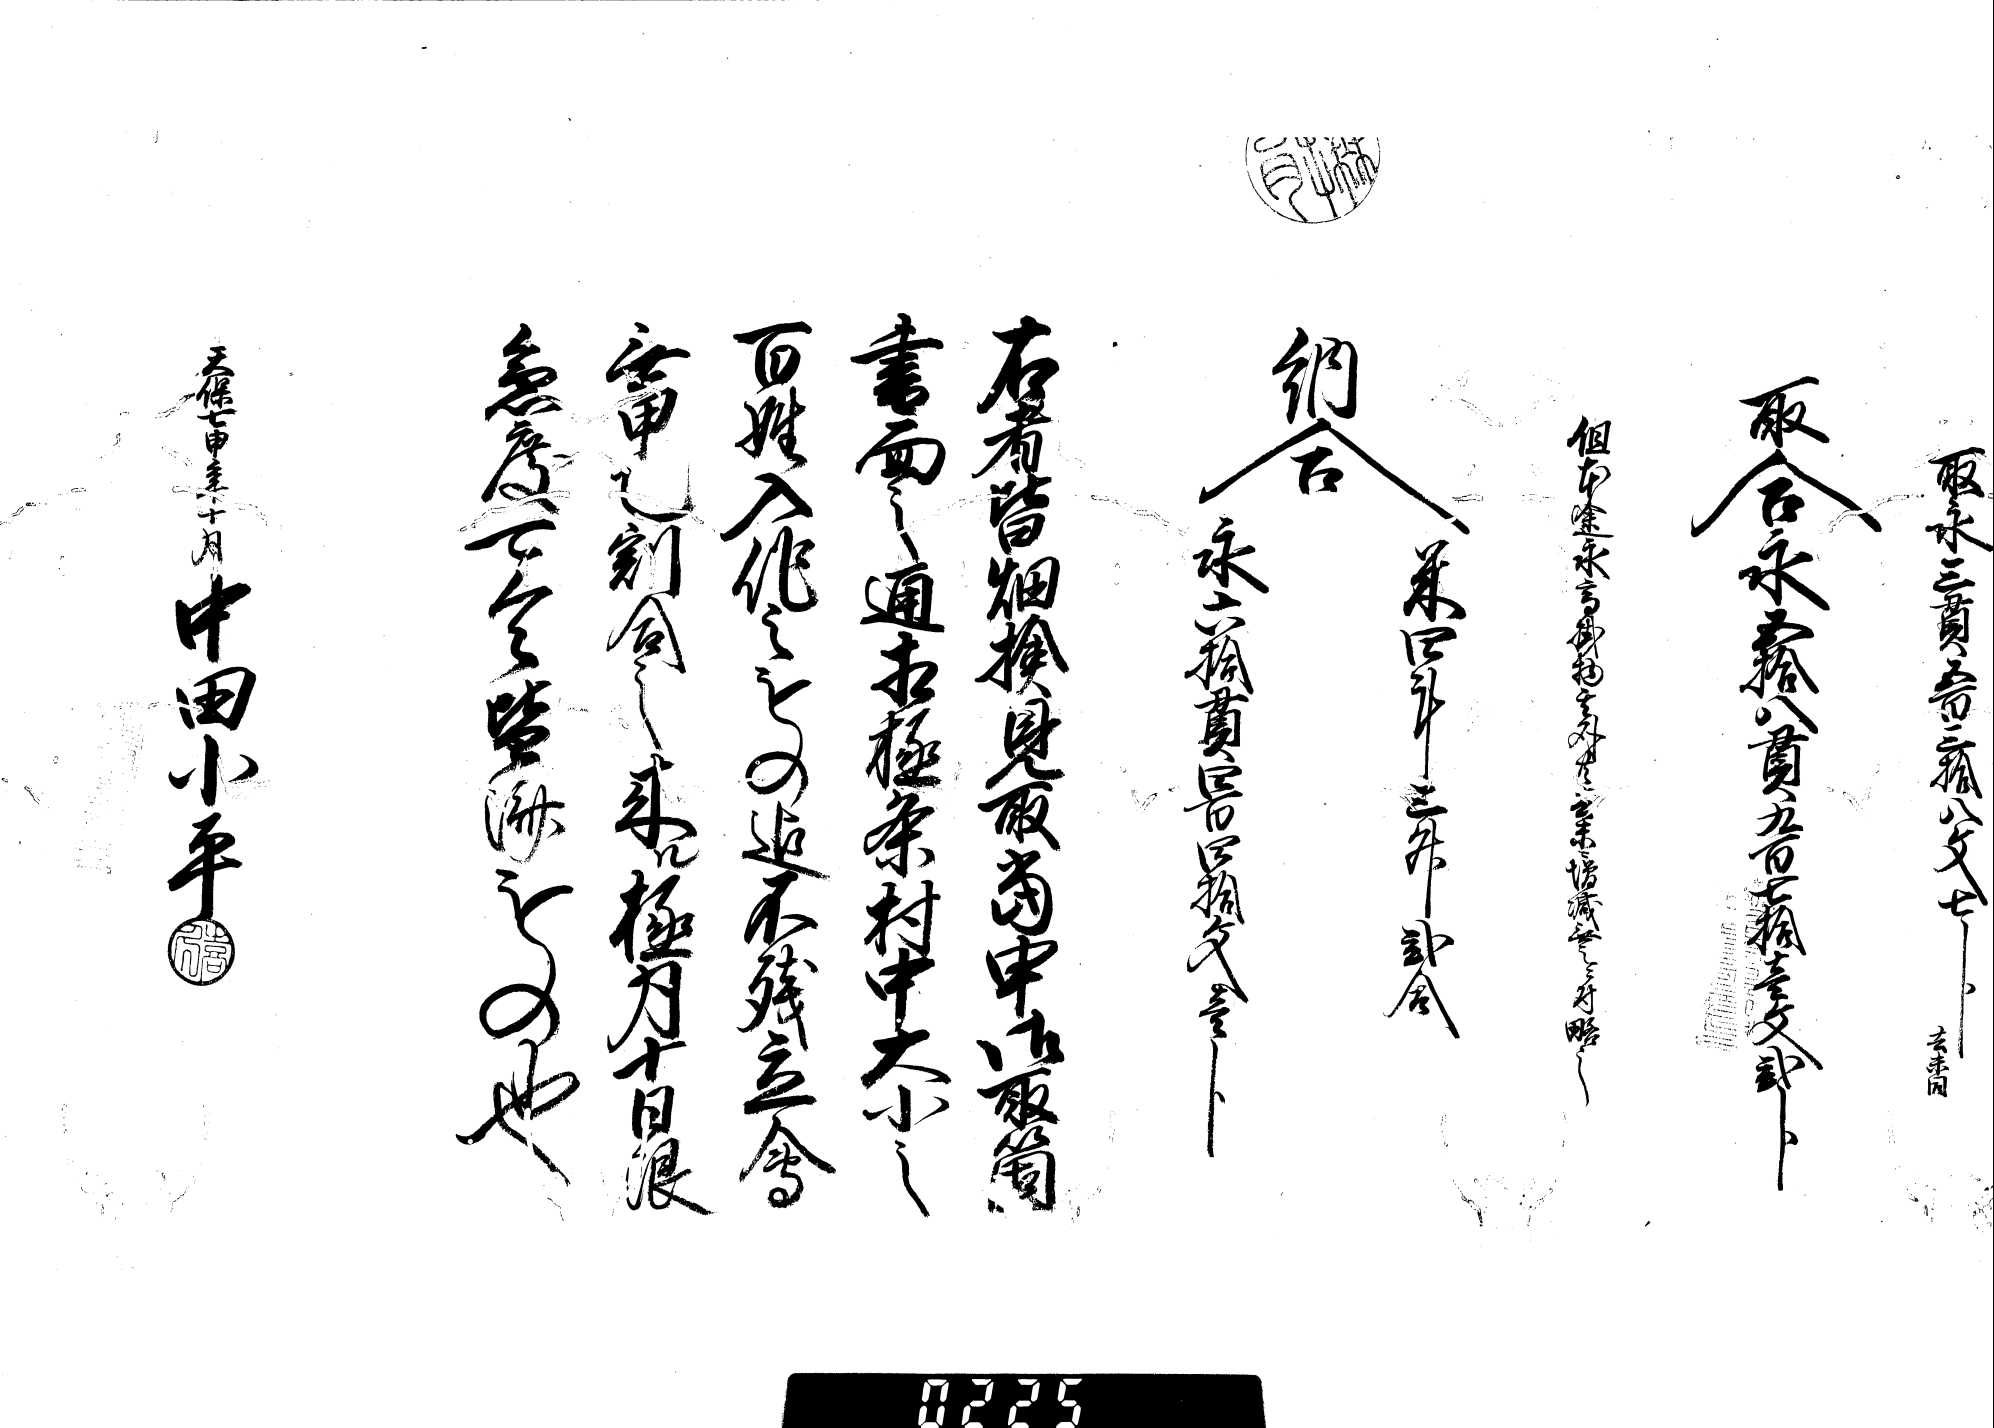 取永三貫五百三拾八文七分
去未同
取合永五拾八貫九百七拾壱文弐分
但本途永高掛物其外共去未ニ増減無之ニ付略之
納合
米四斗三升弐合
永六拾貫四百四拾文壱分
右者皆畑検見取当申御取箇
書面之通相極条村中大小之
百姓入作之もの迄不残立会
無甲乙割合之来ル極月十日限
急度可令皆済もの也
天保七申年十月
中田小平
0225